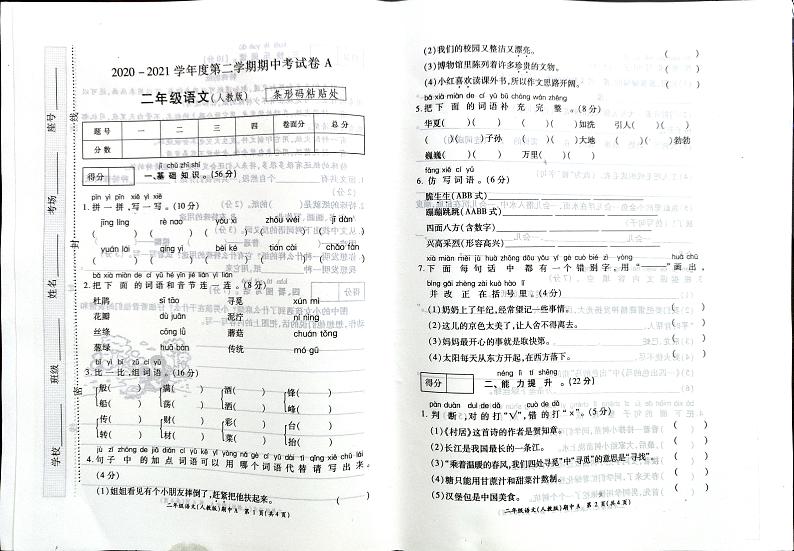 2020－2021学年度第二学期期中考试卷A
二年级语文(人教版) 条形码粘贴处
题号 一 二 三 四 卷面分 总分
分数
得分
jī chǔ zhī shi
一、基础知识。(56分)
pīn yi pīn xiě yi xiě
1.拼一拼,写一写。(10分)
jīng líng rè nao yóu xì zhōu wéi jī dàn
yuán lái qīng yì bèi ké tián cài chǎo fàn
bǎ xià miàn de cí yǔ hé yīn jié lián yì lián
2.把下面的词语和音节连一连。(8分)
杜鹃 sī tāo 寻觅 xún mì
花瓣 dù juān 泥泞 ní nìng
丝绦 cōng lǜ 蘑菇 chuán tǒng
葱绿 huā bàn 传统 mó gū
bǐ yì bǐ zǔ cí yǔ
3.比一比,组词语。(16分)
般( ) 满( ) 洒( ) 锋( )
船( ) 荡( ) 酒( ) 峰( )
传( ) 财( ) 彩( ) 台( )
转( ) 材( ) 菜( ) 抬( )
jù zǐ zhōng de jiā diǎn cí yǔ kě yǐ yòng nǎ ge cí yǔ dài tì qǐng xiě chū lái
4.句子中的加点词语可以用哪个词语代替请写出来。
(4分)
(1)姐姐看见有个小朋友摔倒了,赶紧把他扶起来。 ( )
二年级语文(人教版)期中A 第1页(共4页)
学校 班级 姓名 考场 座号
密 封 线
(2)我们的校园又整洁又漂亮。 ( )
(3)博物馆里陈列着许多珍贵的文物。 ( )
(4)小红喜欢读课外书,所以作文思路开阔。 ( )
bǎ xià miàn de cí yǔ bǔ chōng wán zhěng
5.把下面的词语补充完整。(8分)
华夏( )( ) ( )( )如洗 引人( )( )
( )( )子孙 ( )( )大地 ( )( )勃勃
巍巍( )( ) 万里( )( )
fǎng xiě cí yǔ
6.仿写词语。(6分)
脆生生(ABB式)
蹦蹦跳跳(AABB式)
四面八方(含数字)
兴高采烈(形容高兴)
xià miàn měi jù huà zhōng dōu yǒu yí gè cuò bié zì yòng huà chū
7.下面每句话中都有一个错别字,用“ ”画出,
bìng gǎi zhèng zài kuò hào lǐ
并改正在括号里。(4分)
(1)奶奶上了年纪,经常登记一些事情。 ( )
(2)这儿的京色太美了,让人舍不得离去。 ( )
(3)妈妈最开心的事就是取快第。 ( )
(4)太阳每天从东方开起,在西方落下。 ( )
得分
néng lì tí shēng
二、能力提升。(22分)
pàn duàn duì de dǎ cuò de dǎ
1.判断,对的打“√”,错的打“×”。(5分)
(1)《村居》这首诗的作者是贺知章。 ( )
(2)长江是我国最长的一条江。 ( )
(3)“乘着温暖的春风,我们四处寻觅”中“寻觅”的意思是“寻找”。 ( )
(4)糖只能用甘蔗汁和甜菜汁熬制。 ( )
(5)汉堡包是中国美食。 ( )
二年级语文(人教版)期中A 第2页(共4页)